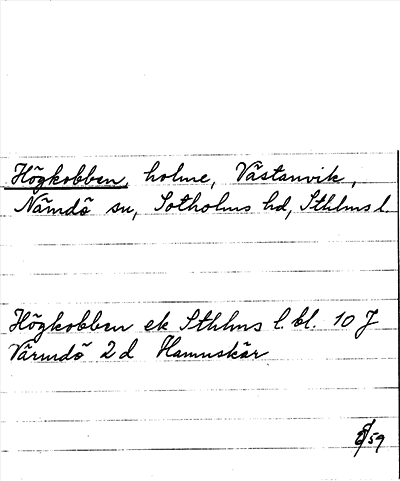 Högkobben, holme, Västanvik,
Nämdö sn, Sotholms hd, Sthlms l.
Högkobben ek Sthlms l. bl. 10 J
Värmdö 2 d Hamnskär
59